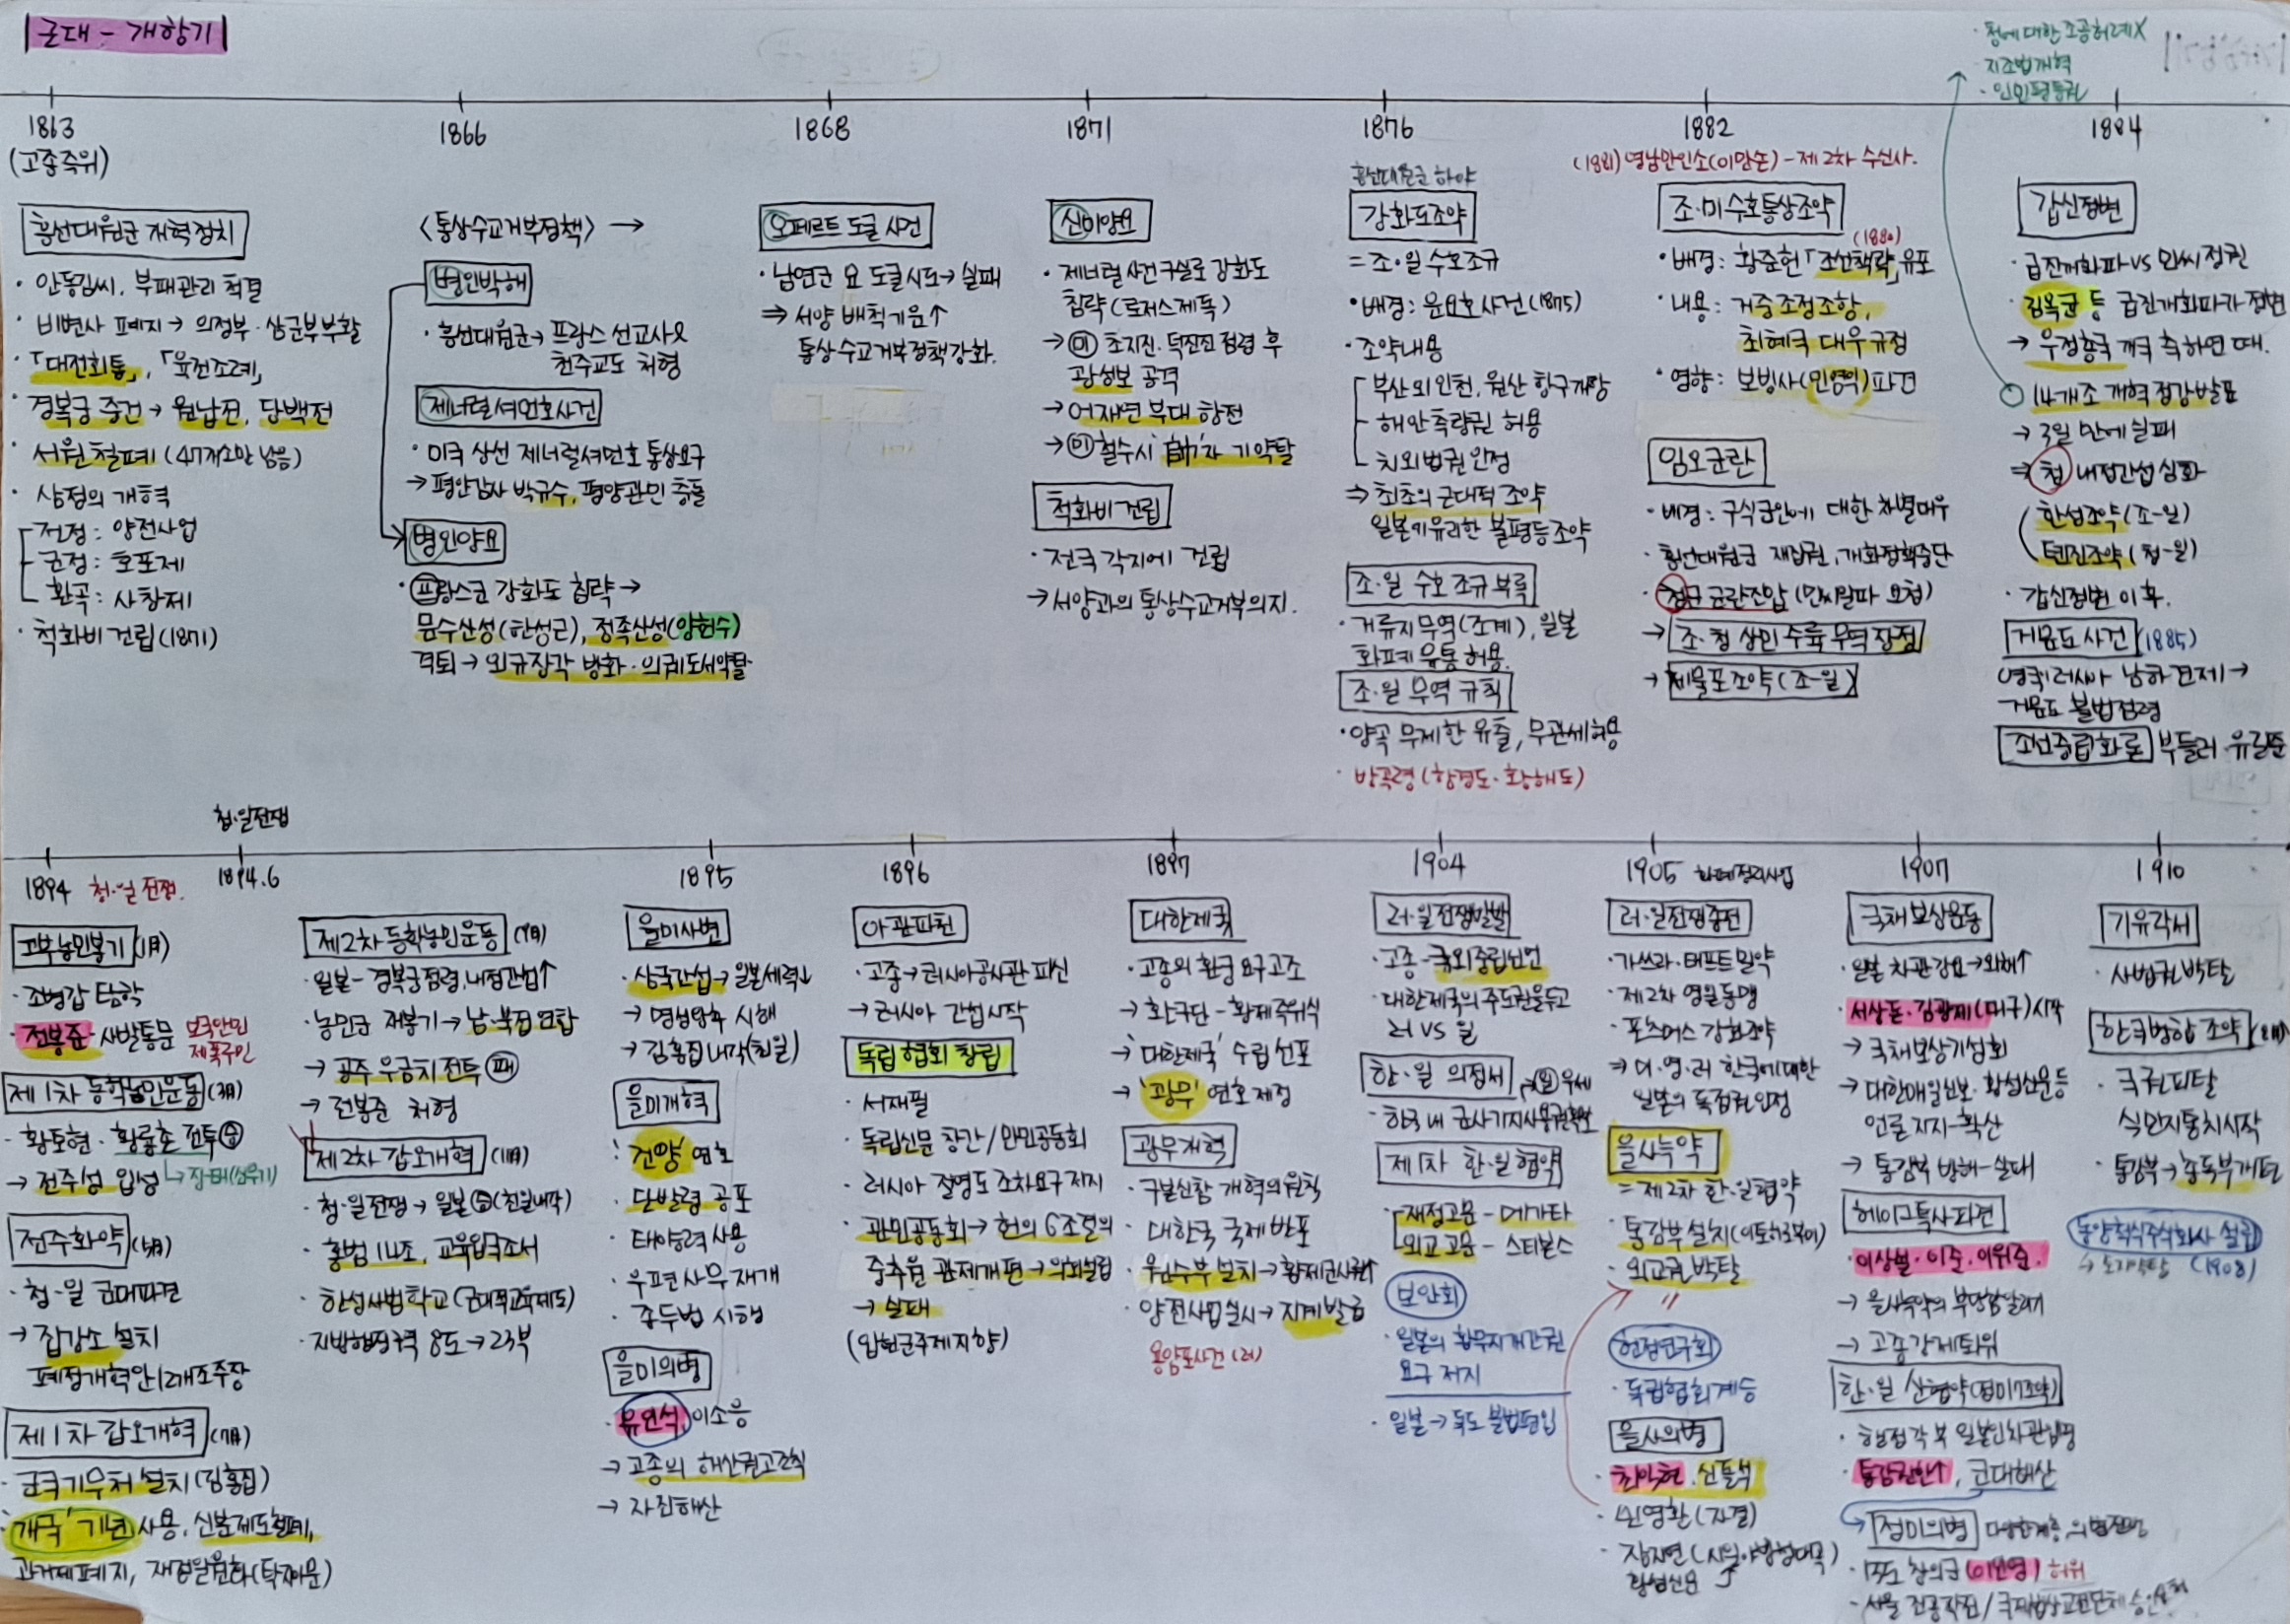 근대 - 개항기
· 청에 대한 조공허례X
· 지조법개혁
· 인민평등권
1863
(고종즉위)
흥선대원군 개혁정치
· 안동김씨, 부패관리 척결
· 비변사 폐지 → 의정부·삼군부부활
· 「대전회통」, 「육전조례」
· 경복궁 중건 → 원납전, 당백전
· 서원철폐 (47개소만 남음)
· 삼정의 개혁
전정 : 양전사업
군정 : 호포제
환곡 : 사창제
· 척화비 건립 (1871)
1866
<통상수교거부정책> →
병인박해
· 흥선대원군 → 프랑스 선교사와
천주교도 처형
제너럴셔먼호사건
· 미국 상선 제너럴셔먼호 통상요구
→ 평안감사 박규수, 평양관민 충돌
병인양요
· 프랑스군 강화도 침략 →
문수산성(한성근), 정족산성(양헌수)
격퇴 → 외규장각 방화·의궤도서약탈
1868
오페르트 도굴 사건
· 남연군 묘 도굴시도 → 실패
⇒ 서양 배척기운↑
통상수교거부정책강화.
1871
신미양요
· 제너럴 사건 구실로 강화도
침략(로저스제독)
→ 미 초지진·덕진진 점령 후
광성보 공격
→ 어재연 부대 항전
→ 미 철수시 '帥'자 기약탈
척화비건립
· 전국 각지에 건립
→ 서양과의 통상수교거부의지.
1876
흥선대원군 하야
강화도조약
= 조·일 수호조규
· 배경 : 운요호 사건 (1875)
· 조약내용
부산 외 인천, 원산 항구개항
해안측량권 허용
치외법권 인정
⇒ 최초의 근대적 조약
일본에유리한 불평등조약
조·일 수호 조규 부록
· 거류지무역(조계), 일본
화폐 유통 허용.
조·일 무역 규칙
· 양곡 무제한 유출, 무관세허용
· 방곡령 (함경도·황해도)
1882
(1881) 영남만인소(이만손) - 제2차 수신사.
조·미 수호통상조약
(1880)
· 배경 : 황준헌 「조선책략」 유포
· 내용 : 거중조정조항,
최혜국 대우규정
· 영향 : 보빙사(민영익)파견
임오군란
· 배경 : 구식군인에 대한 차별대우
· 흥선대원군 재집권, 개화정책중단
· 청군 군란진압 (민씨일파 요청)
→ 조·청 상민 수륙 무역 장정
→ 제물포조약 (조-일)
1884
갑신정변
· 급진개화파 VS 민씨정권
· 김옥균 등 급진개화파가 정변
→ 우정총국 개국 축하연 때.
14개조 개혁정강발표
→ 3일 만에 실패
⇒ 청 내정간섭 심화
한성조약 (조-일)
톈진조약 (청-일)
· 갑신정변 이후.
거문도 사건 (1885)
영국 러시아 남하 견제 →
거문도 불법점령
조선중립화론 부들러·유길준
청·일전쟁
1894 청·일 전쟁.
고부농민봉기 (1月)
· 조병갑 탐학
· 전봉준 사발통문 보국안민
제폭구민
제1차 동학농민운동 (3月)
· 황토현·황룡촌 전투 승
→ 전주성 입성
전주화약 (5月)
· 청·일 군대파견
→ 집강소 설치
폐정개혁안12개조주장
제1차 갑오개혁 (7月)
· 군국기무처 설치(김홍집)
· '개국' 기년 사용, 신분제도철폐,
과거제폐지, 재정일원화(탁지아문)
1894.6
제2차 동학농민운동 (9月)
· 일본 - 경복궁점령, 내정간섭↑
· 농민군 재봉기 → 남·북접 연합
→ 공주 우금치 전투 패
→ 전봉준 처형
제2차 갑오개혁 (11月)
· 청·일전쟁 → 일본 승(친일내각)
· 홍범 14조, 교육입국조서
· 한성사범학교 (근대적교육제도)
· 지방행정구역 8도 → 23부
1895
을미사변
· 삼국간섭 → 일본세력↓
→ 명성황후 시해
→ 김홍집내각(친일)
을미개혁
· '건양' 연호
· 단발령 공포
· 태양력 사용
· 우편사무 재개
· 종두법 시행
을미의병
· 유인석, 이소응
→ 고종의 해산권고조칙
→ 자진해산
1896
아관파천
· 고종 → 러시아공사관 피신
→ 러시아 간섭시작
독립협회 창립
· 서재필
· 독립신문 창간 / 만민공동회
· 러시아 절영도 조차요구 저지
· 관민공동회 → 헌의 6조결의
중추원 관제개편 → 의회설립
→ 실패
(입헌군주제지향)
1897
대한제국
· 고종의 환궁 요구고조
→ 환구단 - 황제즉위식
→ '대한제국' 수립 선포
→ '광무' 연호 제정
광무개혁
· 구본신참 개혁의원칙
· 대한국 국제 반포
· 원수부 설치 → 황제군사권↑
· 양전사업실시 → 지계발급
용암포사건 (러)
1904
러·일전쟁발발
· 고종 - 국외중립선언
· 대한제국의 주도권을두고
러 VS 일
한·일 의정서 → 일 우세
· 한국 내 군사기지사용권확보
제1차 한·일 협약
재정고문 - 메가타
외교고문 - 스티븐스
보안회
· 일본의 황무지개간권
요구 저지
· 일본 → 독도 불법편입
1905 화폐정리사업
러·일전쟁종전
· 가쓰라·태프트밀약
· 제2차 영일동맹
· 포츠머스 강화조약
⇒ 미·영·러 한국에대한
일본의 독점권인정
을사늑약
= 제2차 한·일협약
· 통감부설치(이토히로부미)
· 외교권 박탈
헌정연구회
· 독립협회계승
을사의병
· 최익현·신돌석
· 민영환 (자결)
· 장지연 (시일야방성대곡)
황성신문
1907
국채보상운동
· 일본 차관강요 → 외채↑
· 서상돈·김광제(대구)시작
→ 국채보상기성회
→ 대한매일신보·황성신문등
언론지지-확산
→ 통감부 방해-실패
헤이그특사파견
· 이상설·이준·이위종.
→ 을사늑약의 부당함알리기
→ 고종강제퇴위
한·일 신협약(정미7조약)
· 행정각 부 일본인차관임명
· 통감권한↑, 군대해산
정미의병
· 13도 창의군 (이인영) 허위
· 서울 진공작전 /
1910
기유각서
· 사법권박탈
한국병합 조약 (8月)
· 국권피탈
식민지통치시작
· 통감부 → 총독부개편
동양척식주식회사 설립
(1908)